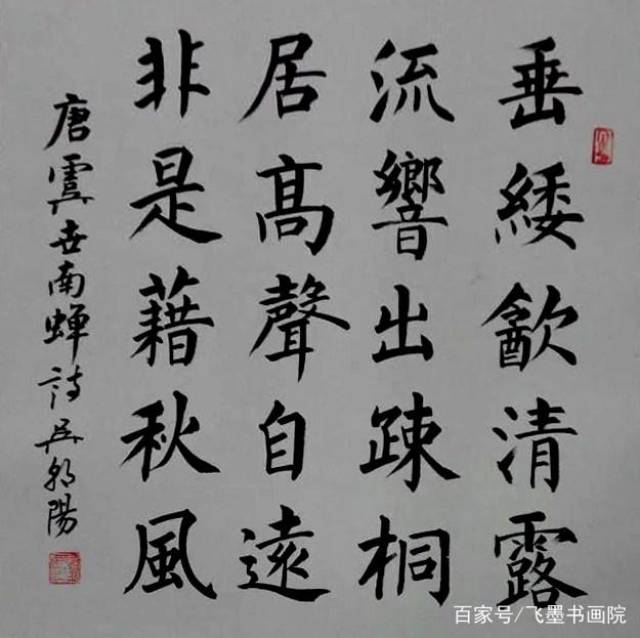 垂緌㱃清露
流響出踈桐
居髙聲自遠
非是藉秋風
唐虞世南蝉詩吴陽
百家号/飞墨书画院